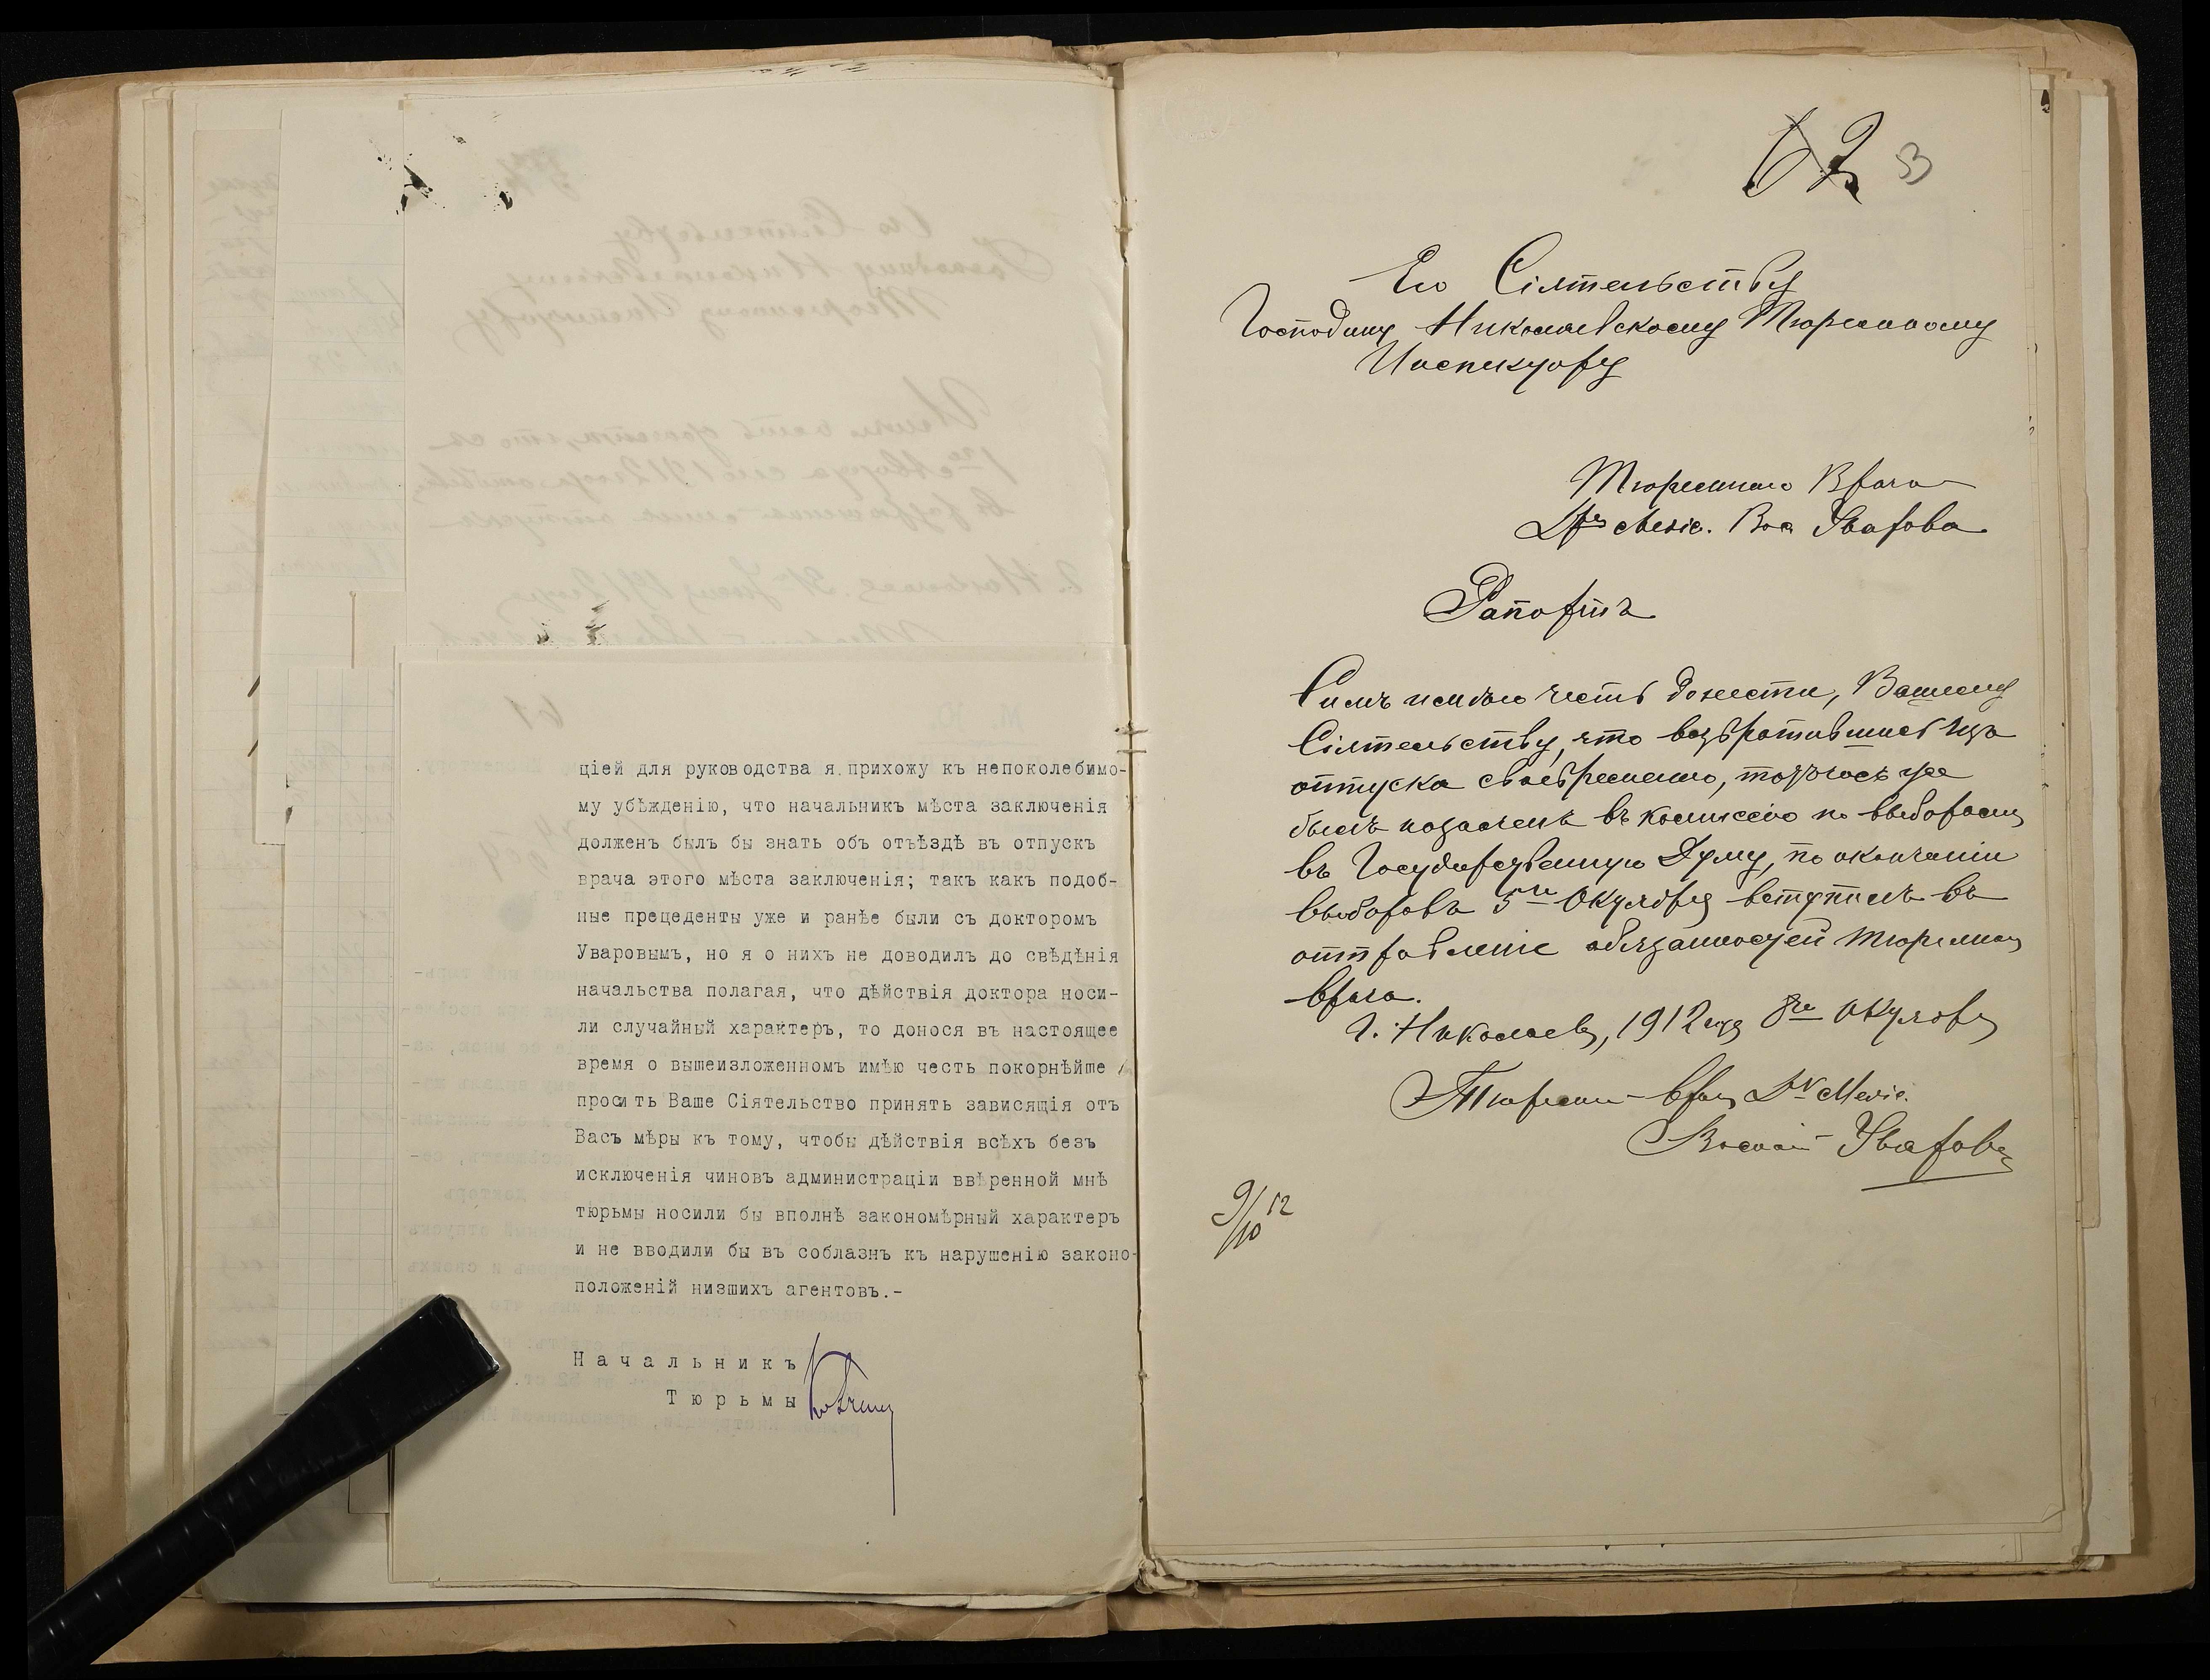 ціей для руководства я прихожу къ непоколебимо-
му убѣжденію, что начальникъ мѣста заключенія
долженъ былъ бы знать объ отъѣздѣ въ отпускъ
врача этого мѣста заключенія; такъ какъ подоб-
ные прецеденты уже и ранѣе были съ докторомъ
Уваровымъ, но я о нихъ не доводилъ до свѣдѣнія
начальства полагая, что дѣйствія доктора носи-
ли случайный характеръ, то донося въ настоящее
время о вышеизложенномъ имѣю честь покорнѣйше
просить Ваше Сіятельство принять зависящія отъ
Васъ мѣры къ тому, чтобы дѣйствія всѣхъ безъ
исключенія чиновъ администраціи ввѣренной мнѣ
тюрьмы носили бы вполнѣ закономѣрный характеръ
и не вводили бы въ соблазнъ къ нарушенію законо-
положеній низшихъ агентовъ.-
Начальникъ
Тюрьмы
62 53
Его Сіятельству
Господину Николаевскому Тюремному
Инспектору
Тюремнаго Врача
Уварова
Рапортъ
Симъ имѣю честь донести, Вашему
Сіятельству, что возвратившись изъ
отпуска своевременно, тотчасъ же
былъ назначенъ въ комиссію по выборамъ
въ Государственную Думу, по окончаніи
выборовъ 5го Октября вступилъ въ
отправленіе обязанностей тюремнаго
врача.
Г. Николаевъ, 1912 года 8го Октября
Тюремн. врачъ Dr Medic.
Уваровъ
9/10 12